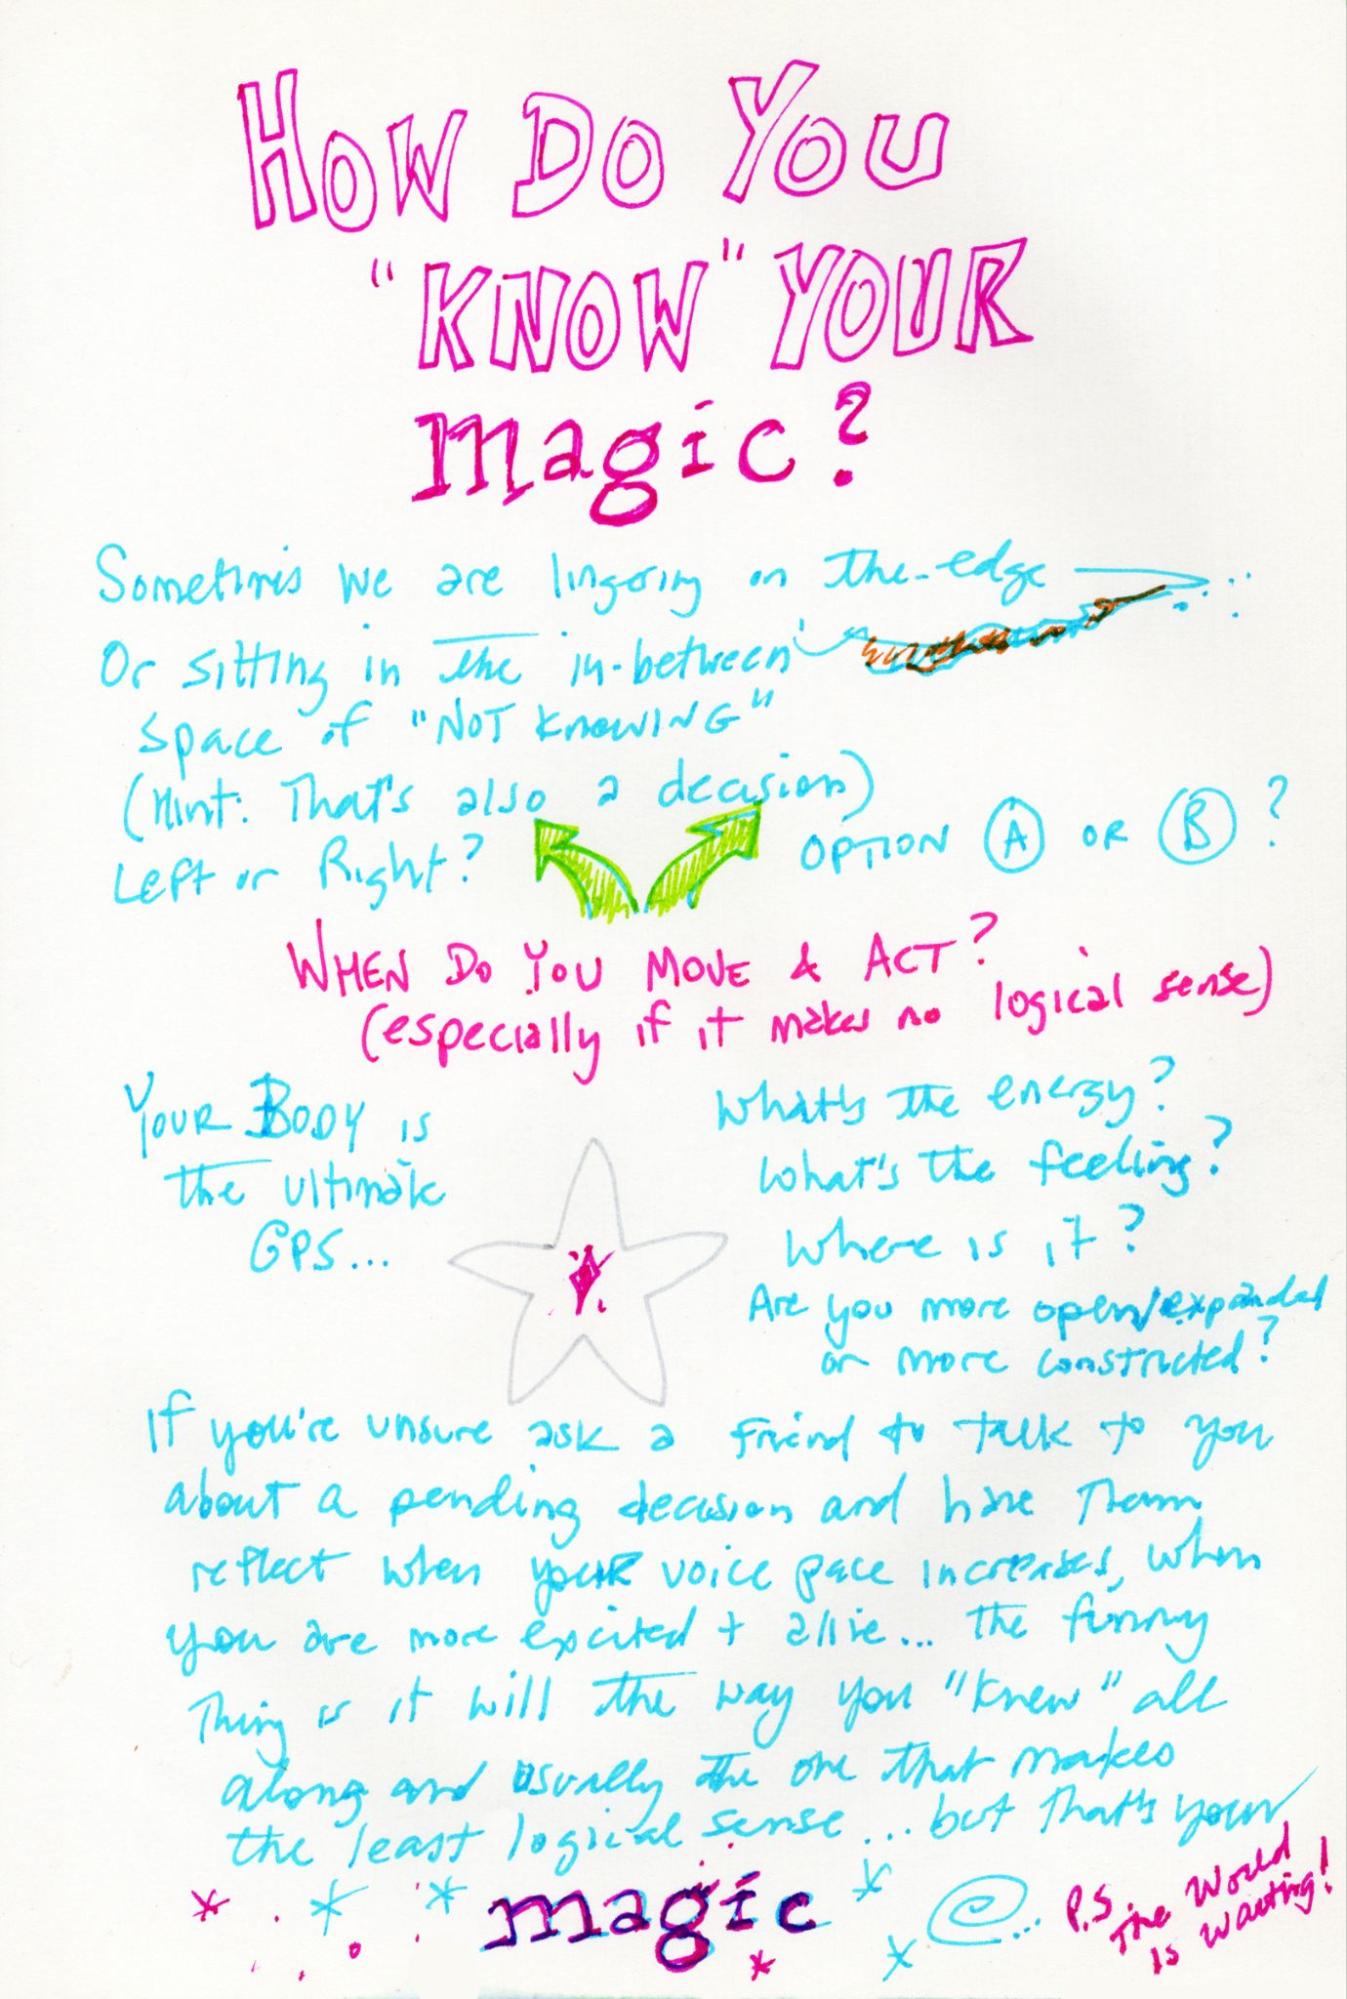 HOW DO YOU
"KNOW" YOUR
magic?
Sometimes we are lingering on the edge
Or sitting in the in-between
space of "NOT KNOWING"
(Hint: That's also a decision)
Left or Right?
OPTION A OR B?
WHEN DO YOU MOVE & ACT?
(especially if it makes no logical sense)
YOUR BODY is
the ultimate
GPS...
What's the energy?
What's the feeling?
Where is it?
Are you more open/expanded
or more constricted?
If you're unsure ask a friend to talk to you
about a pending decision and have them
reflect when your voice pace increases, when
you are more excited + alive... the funny
Thing is it will the way you "knew" all
along and usually the one that makes
the least logical sense... but that's your
magic
P.S.
The World
is waiting!